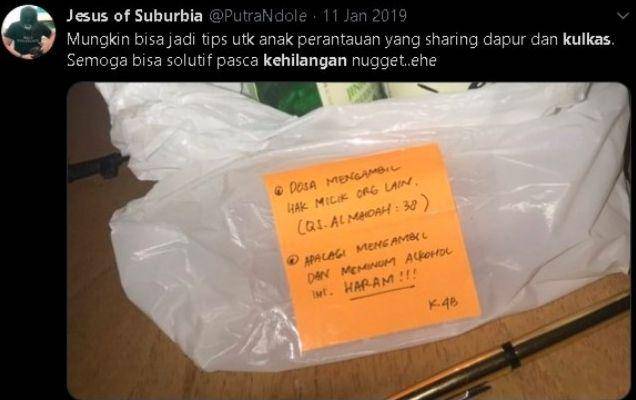 Jesus of Suburbia @PutraNdole · 11 Jan 2019
Mungkin bisa jadi tips utk anak perantauan yang sharing dapur dan kulkas.
Semoga bisa solutif pasca kehilangan nugget..ehe
DOSA MENGAMBIL
HAK MILIK ORG LAIN.
(QS. AL MAIDAH : 38)
APALAGI MENGAMBIL
DAN MEMINUM ALKOHOL
INI. HARAM!!!
K.4B